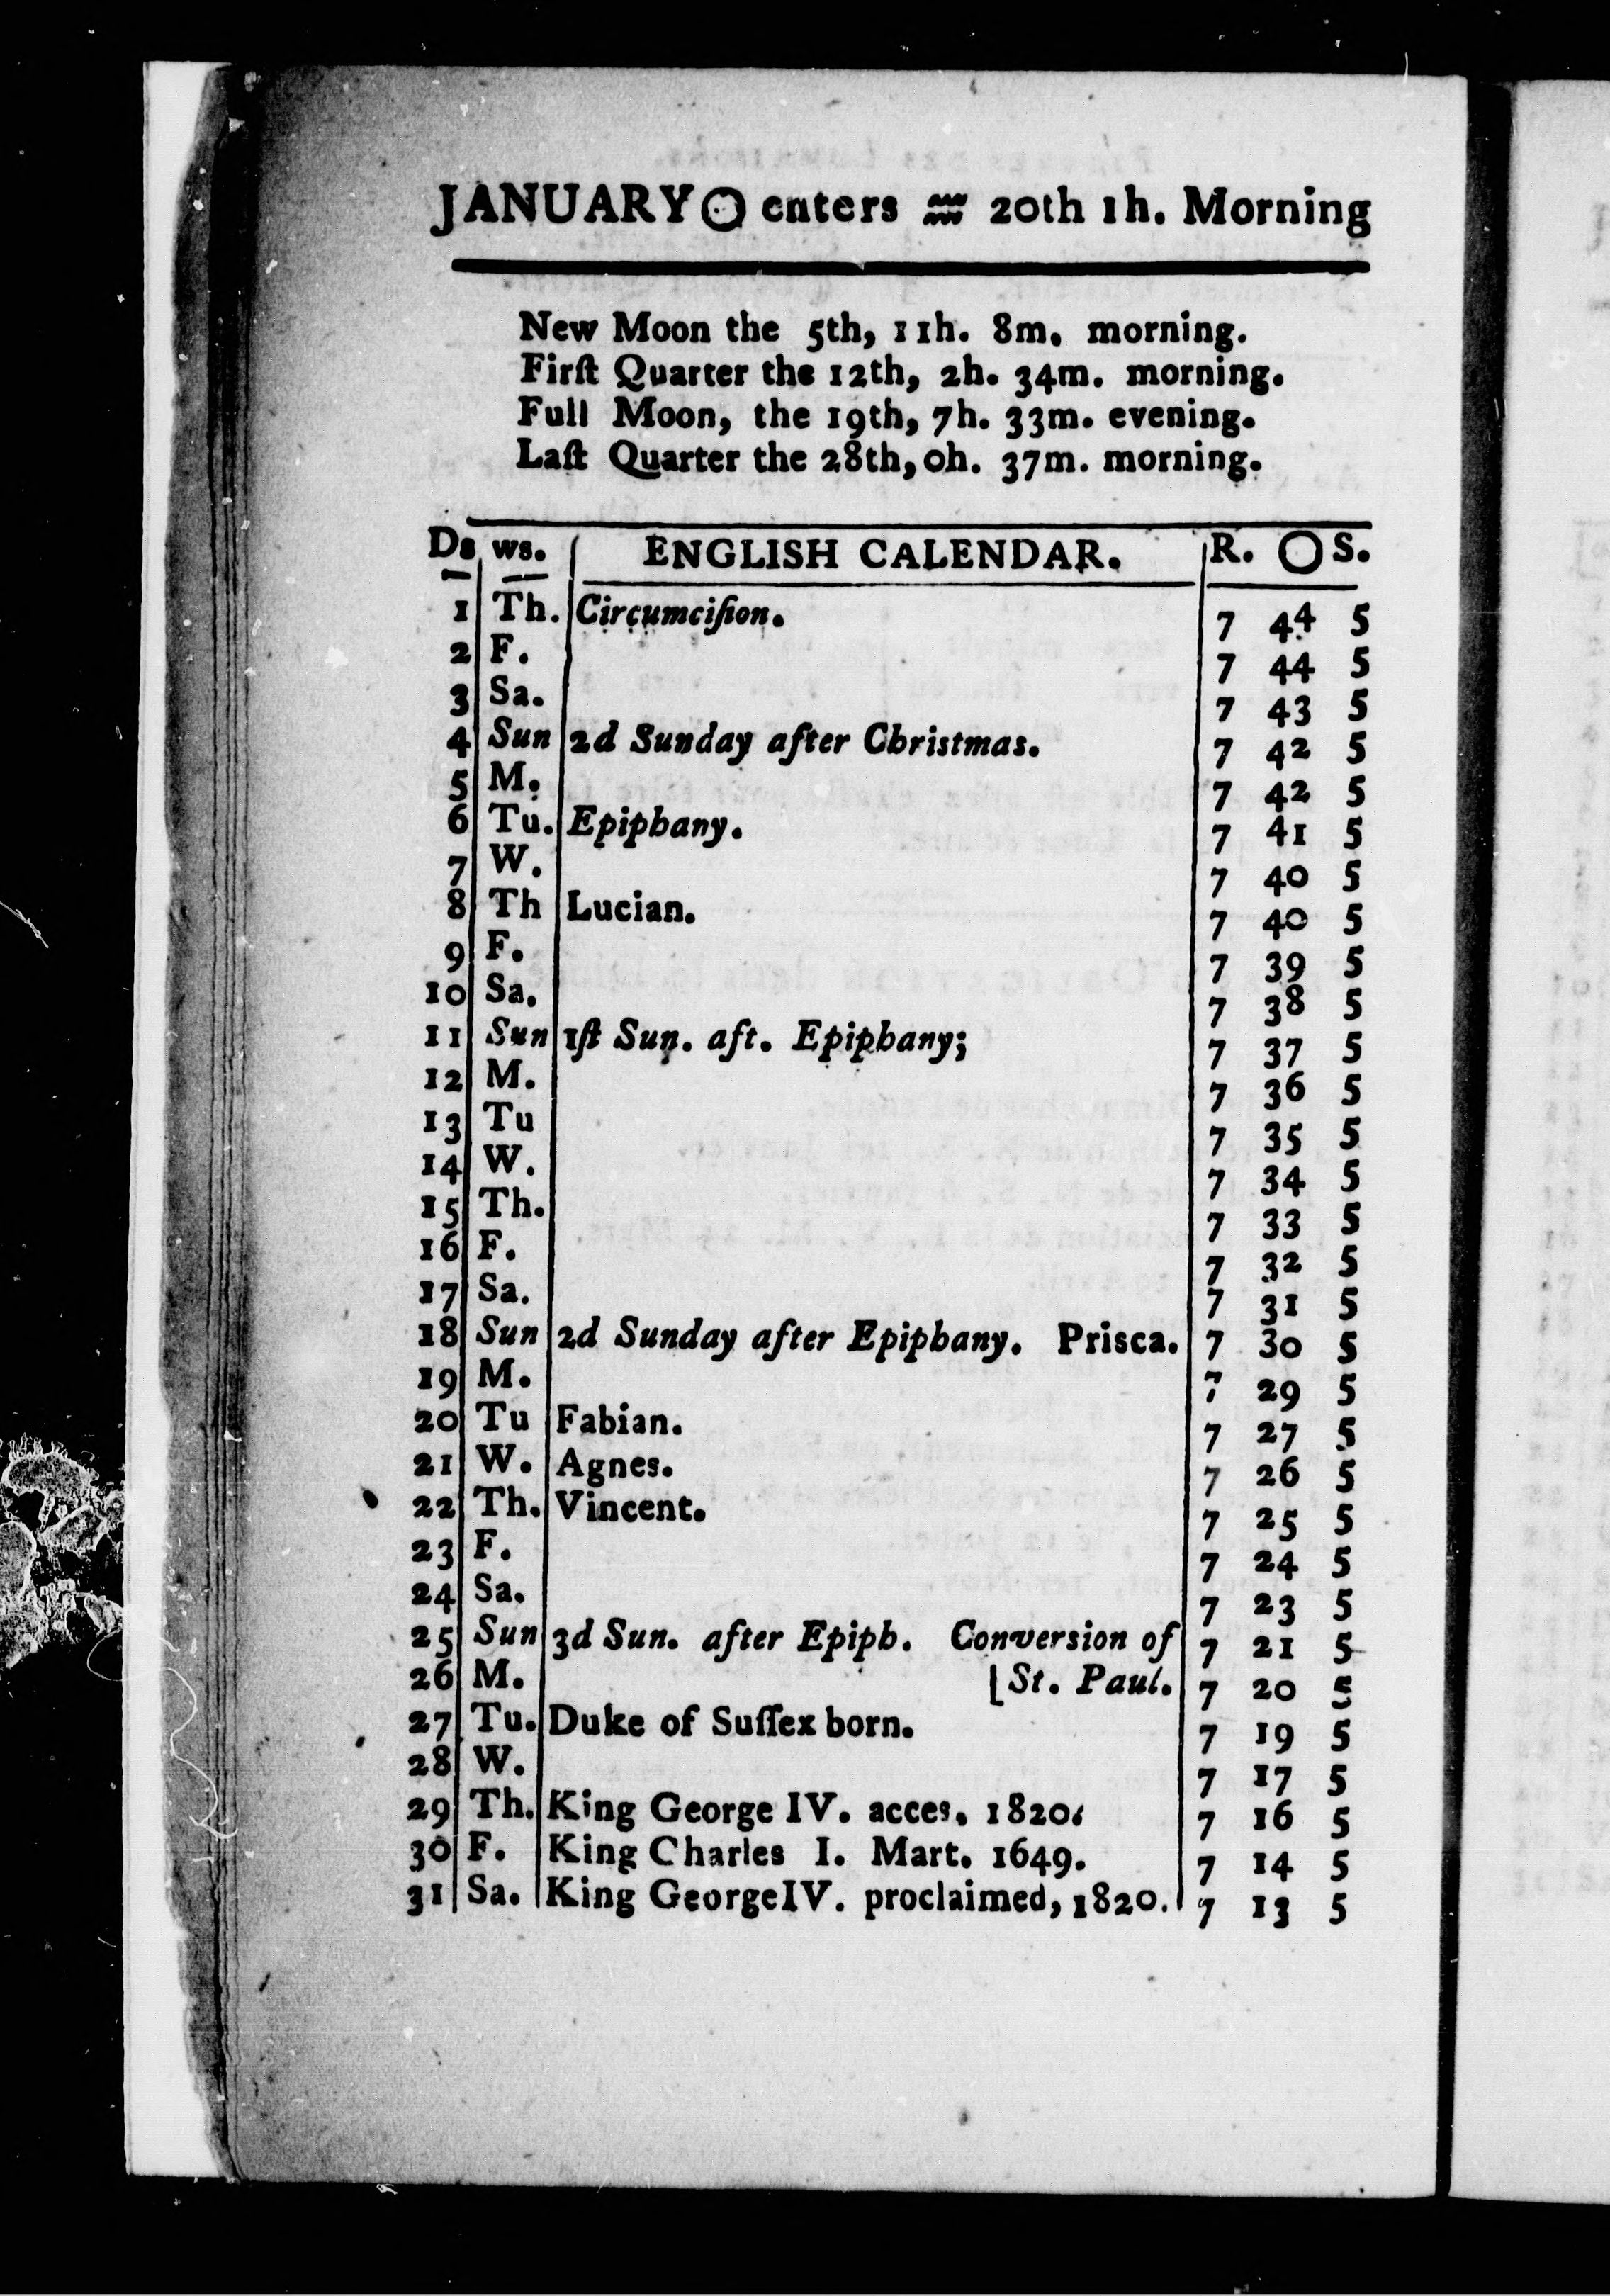 JANUARY ☉ enters ♒ 20th 1h. Morning
New Moon the 5th, 11h. 8m. morning.
Firſt Quarter the 12th, 2h. 34m. morning.
Full Moon, the 19th, 7h. 33m. evening.
Laſt Quarter the 28th, 0h. 37m. morning.
Ds ws. ENGLISH CALENDAR. R. ◯ S.
1 Th. Circumciſion. 7 44 5
2 F. 7 44 5
3 Sa. 7 43 5
4 Sun 2d Sunday after Christmas. 7 42 5
5 M. 7 42 5
6 Tu. Epiphany. 7 41 5
7 W. 7 40 5
8 Th Lucian. 7 40 5
9 F. 7 39 5
10 Sa. 7 38 5
11 Sun 1ſt Sun. aft. Epiphany; 7 37 5
12 M. 7 36 5
13 Tu 7 35 5
14 W. 7 34 5
15 Th. 7 33 5
16 F. 7 32 5
17 Sa. 7 31 5
18 Sun 2d Sunday after Epiphany. Prisca. 7 30 5
19 M. 7 29 5
20 Tu Fabian. 7 27 5
21 W. Agnes. 7 26 5
22 Th. Vincent. 7 25 5
23 F. 7 24 5
24 Sa. 7 23 5
25 Sun 3d Sun. after Epiph. Conversion of 7 21 5
26 M. [St. Paul. 7 20 5
27 Tu. Duke of Suſſex born. 7 19 5
28 W. 7 17 5
29 Th. King George IV. acces. 1820. 7 16 5
30 F. King Charles I. Mart. 1649. 7 14 5
31 Sa. King GeorgeIV. proclaimed, 1820. 7 13 5